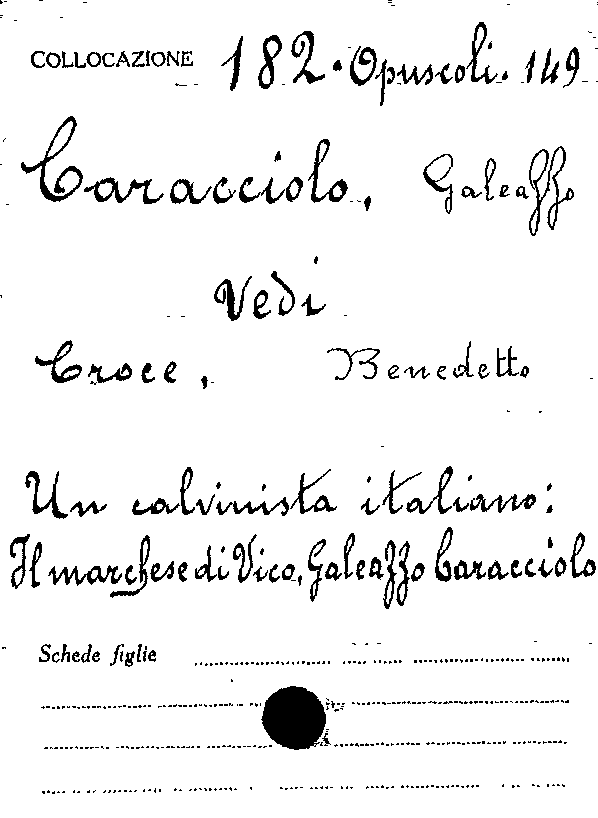 COLLOCAZIONE 182. Opuscoli. 149
Caracciolo, Galeazzo
Vedi
Croce, Benedetto
Un calvinista italiano:
Il marchese di Vico, Galeazzo Caracciolo
Schede figlie